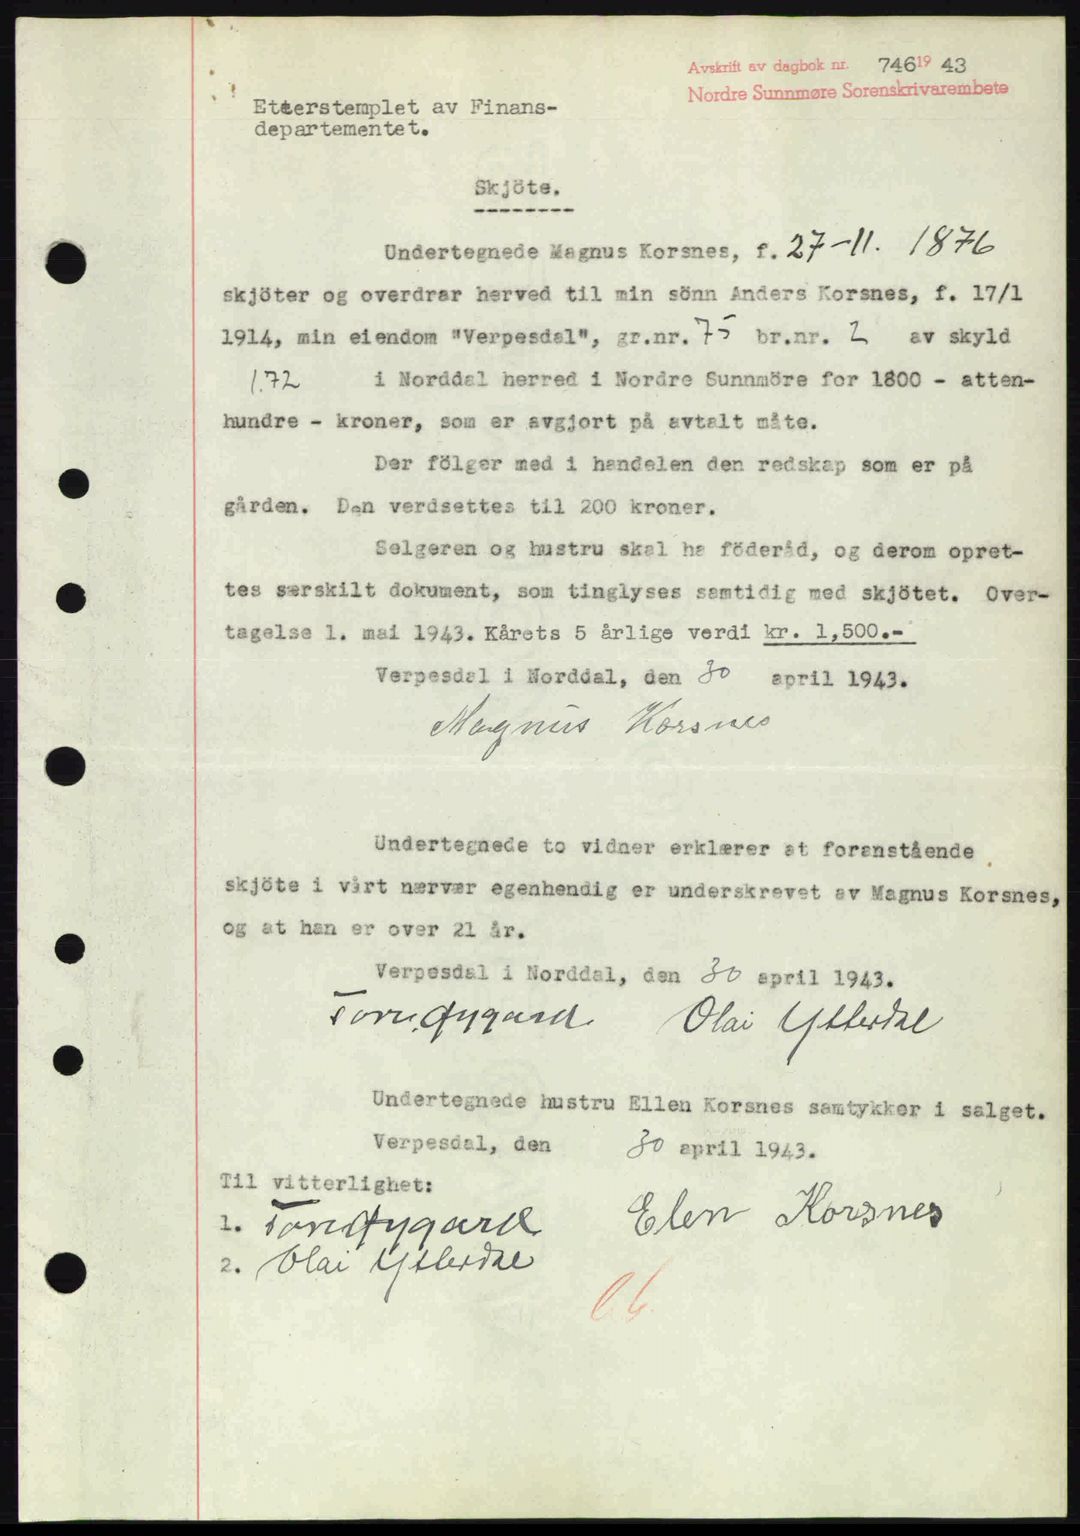 Avskrift av dagbok nr. 746 19 43
Nordre Sunnmøre Sorenskrivarembete
Etterstemplet av Finans-
departementet.
Skjöte.
Undertegnede Magnus Korsnes, f. 27-11. 1876
skjöter og overdrar herved til min sönn Anders Korsnes, f. 17/1
1914, min eiendom "Verpesdal", gr.nr. 75 br.nr. 2 av skyld
1.72 i Norddal herred i Nordre Sunnmöre for 1800 - atten-
hundre - kroner, som er avgjort på avtalt måte.
Der fölger med i handelen den redskap som er på
gården. Den verdsettes til 200 kroner.
Selgeren og hustru skal ha föderåd, og derom opret-
tes særskilt dokument, som tinglyses samtidig med skjötet. Over-
tagelse 1. mai 1943. Kårets 5 årlige verdi kr. 1,500.-
Verpesdal i Norddal, den 30 april 1943.
Magnus Korsnes
Undertegnede to vidner erklærer at foranstående
skjöte i vårt nærvær egenhendig er underskrevet av Magnus Korsnes,
og at han er over 21 år.
Verpesdal i Norddal, den 30 april 1943.
Olai Ytterdal
Undertegnede hustru Ellen Korsnes samtykker i salget.
Verpesdal, den 30 april 1943.
Til vitterlighet:
Elen Korsnes
1.
2. Olai Ytterdal